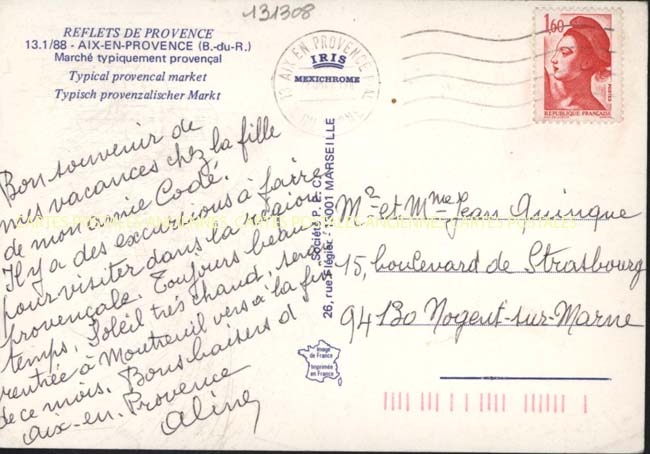 131308
REFLETS DE PROVENCE
13.1/88 - AIX-EN-PROVENCE (B.-du-R.)
Marché typiquement provençal
Typical provencal market
Typisch provenzalischer Markt
IRIS
MEXICHROME
13 AIX EN PROVENCE
1,60
POSTES
REPUBLIQUE FRANÇAISE
Bon souvenir de
mes vacances chez la fille
de mon amie Codé.
Il y a des excursions à faire
pour visiter dans la région
provençale. Toujours beau
temps, Soleil très chaud, serai
rentrée à Montreuil vers à la fin
de ce mois. Bons baisers d
Aix-en-Provence
Aline
Société P.E.C.
26, rue Flégier - 13001 MARSEILLE
Mr et Mme Jean Quinque
15, boulevard de Strasbourg
94130 Nogent-sur-Marne
Image de France
Imprimée en France
CARTES POSTALES ANCIENNES CARTES POSTALES ANCIENNES CARTES POSTALES